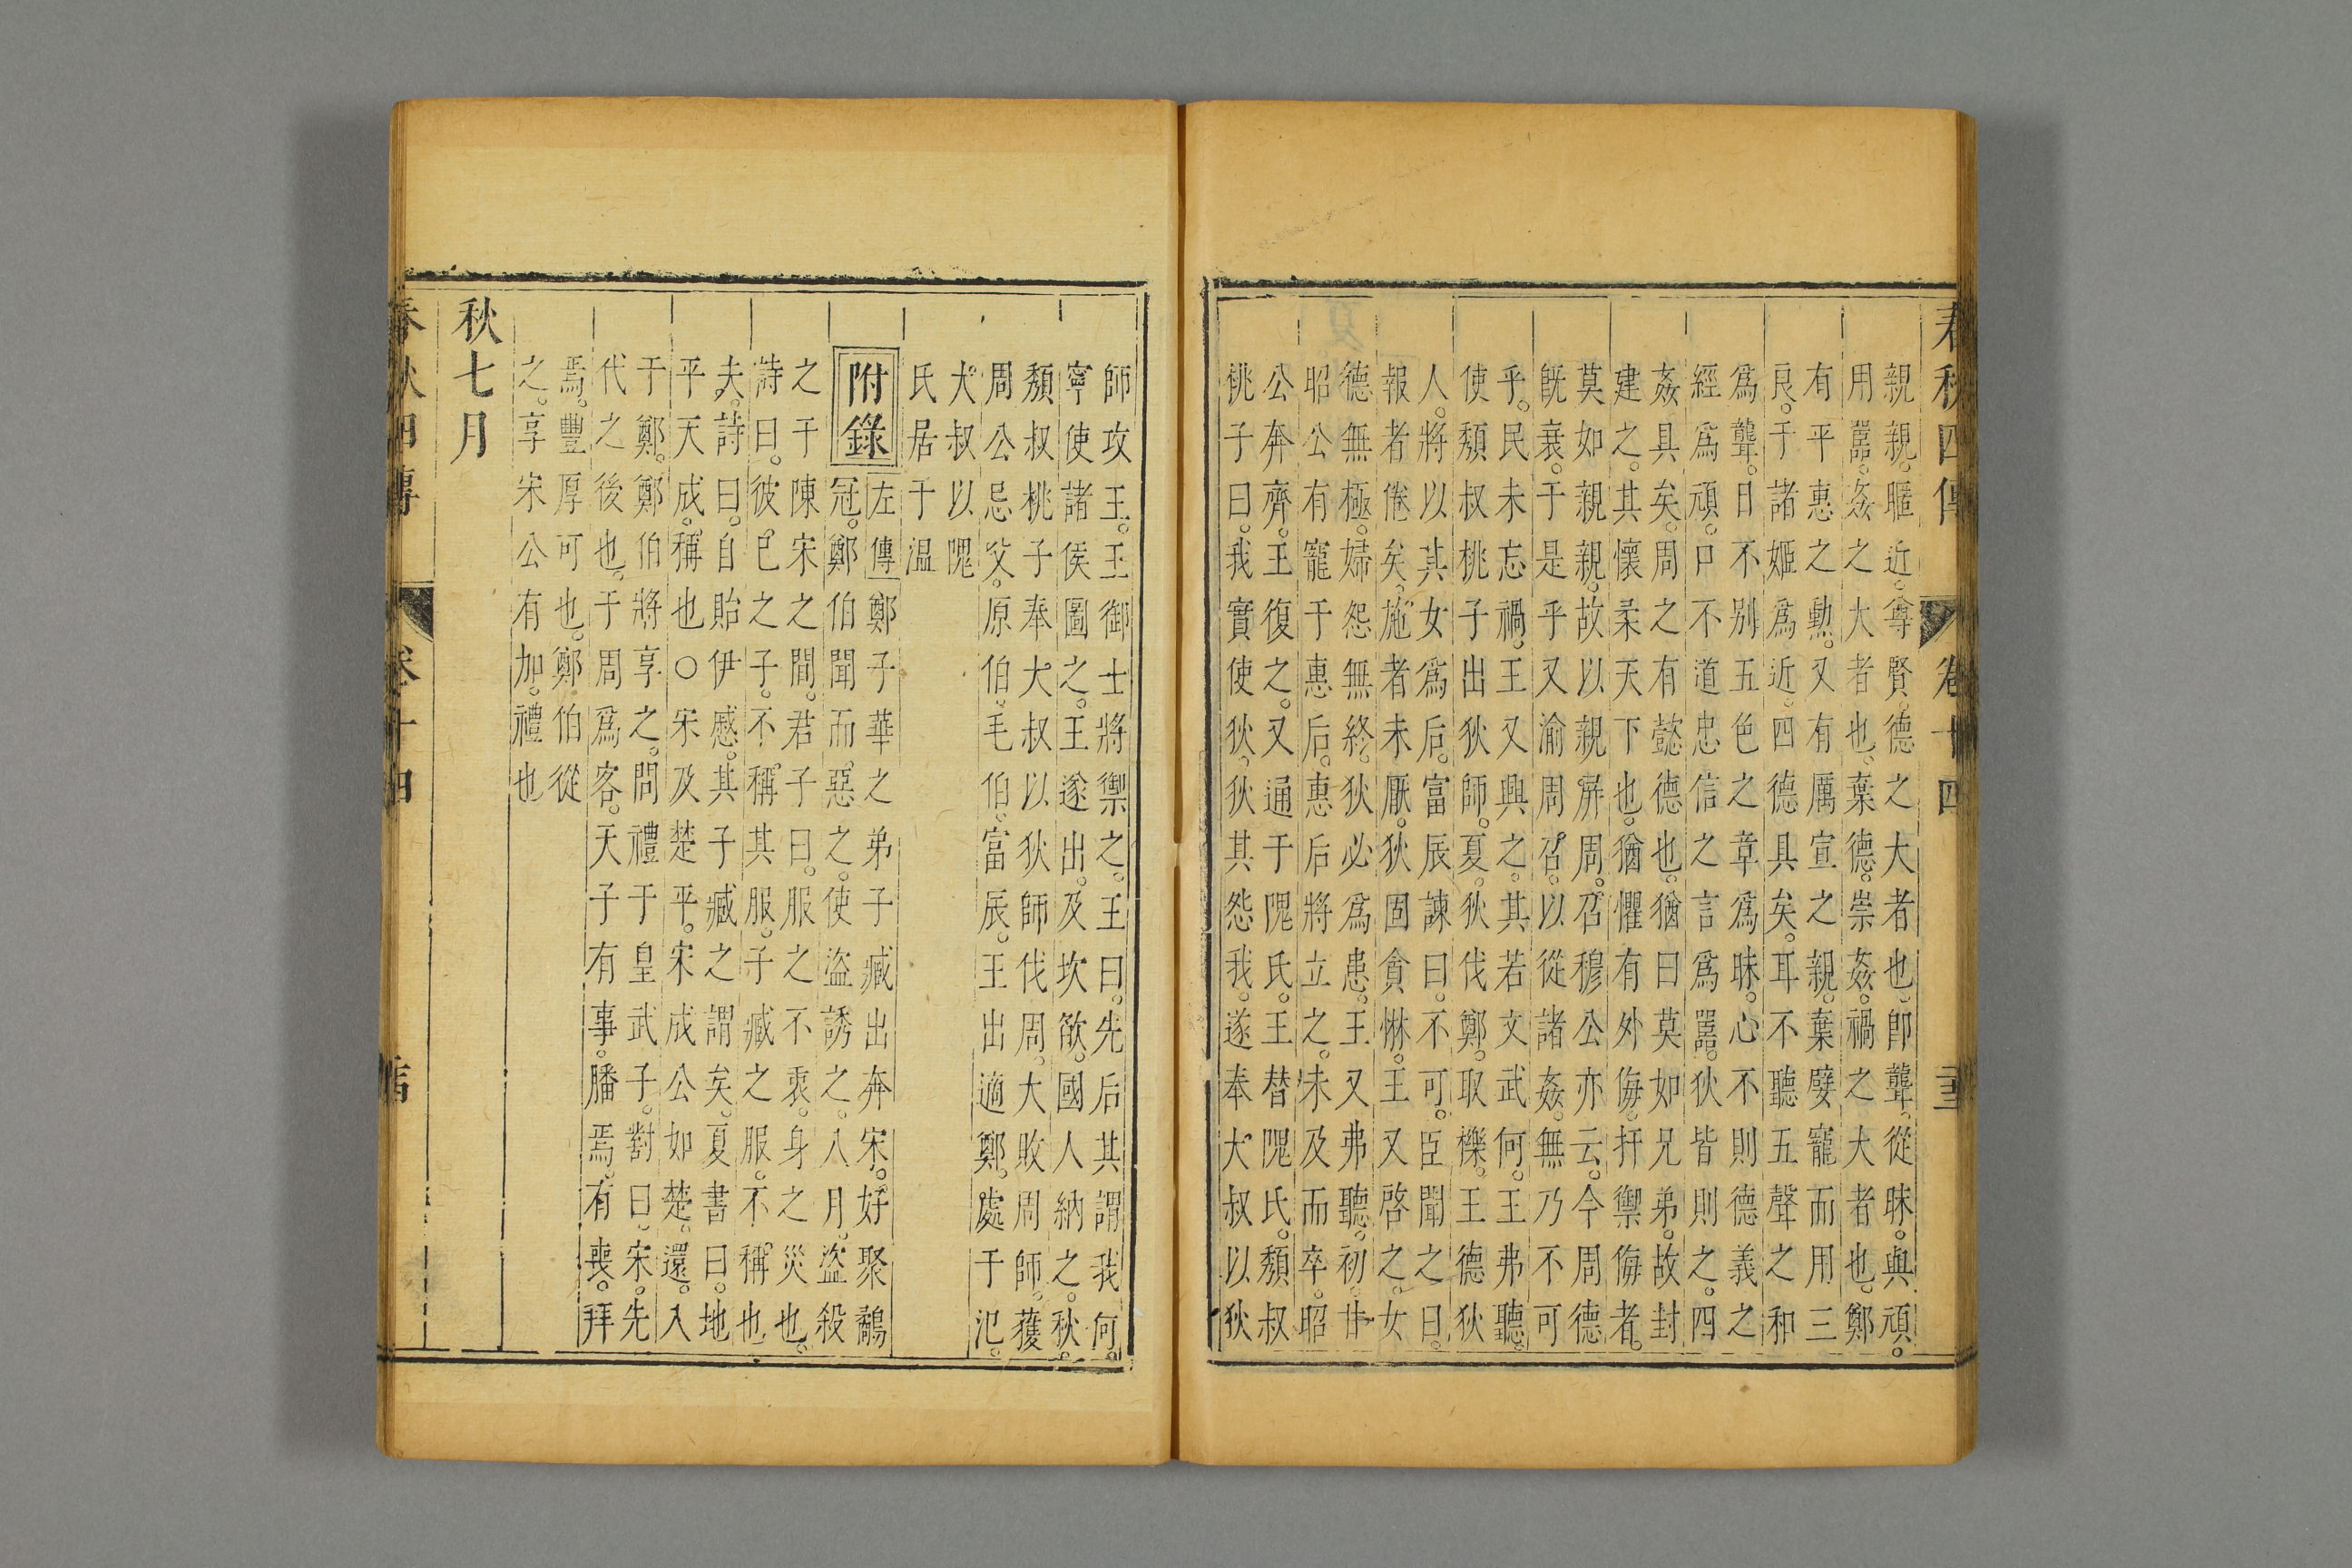 春秋四傳 卷十四
親親。暱近。尊賢。德之大者也。卽聾。從昧。與頑。
用嚚。姦之大者也。棄德。崇姦。禍之大者也。鄭
有平惠之勲。又有厲宣之親。棄嬖寵而用三
良。于諸姬爲近。四德具矣。耳不聽五聲之和
爲聾。目不别五色之章爲昧。心不則德義之
經爲頑。口不道忠信之言爲嚚。狄皆則之。四
姦具矣。周之有懿德也。猶曰莫如兄弟。故封
建之。其懷柔天下也。猶懼有外侮。扞禦侮者。
莫如親親。故以親屏周。召穆公亦云。今周德
旣衰。于是乎又渝周召。以從諸姦。無乃不可
乎。民未忘禍。王又興之。其若文武何。王弗聽。
使頹叔桃子出狄師。夏。狄伐鄭。取櫟。王德狄
人。將以其女爲后。富辰諫曰。不可。臣聞之曰。
報者倦矣。施者未厭。狄固貪惏。王又啓之。女
德無極。婦怨無終。狄必爲患。王又弗聽。初。甘
昭公有寵于惠后。惠后將立之。未及而卒。昭
公奔齊。王復之。又通于隗氏。王替隗氏。頹叔
桃子曰。我實使狄。狄其怨我。遂奉大叔以狄
師攻王。王御士將禦之。王曰。先后其謂我何。
寧使諸侯圖之。王遂出。及坎欿。國人納之。秋。
頹叔桃子奉大叔以狄師伐周。大敗周師。獲
周公忌父。原伯。毛伯。富辰。王出適鄭。處于氾。
大叔以隗
氏居于温
附錄
左傳鄭子華之弟子臧出奔宋。好聚鷸
冠。鄭伯聞而惡之。使盜誘之。八月。盜殺
之于陳宋之間。君子曰。服之不衷。身之災也。
詩曰。彼已之子。不稱其服。子臧之服。不稱也
夫。詩曰。自貽伊慼。其子臧之謂矣。夏書曰。地
平天成。稱也○宋及楚平。宋成公如楚。還。入
于鄭。鄭伯將享之。問禮于皇武子。對曰。宋。先
代之後也。于周爲客。天子有事。膰焉。有喪。拜
焉。豐厚可也。鄭伯從
之。享宋公有加。禮也
秋七月
春秋四傳 卷十四